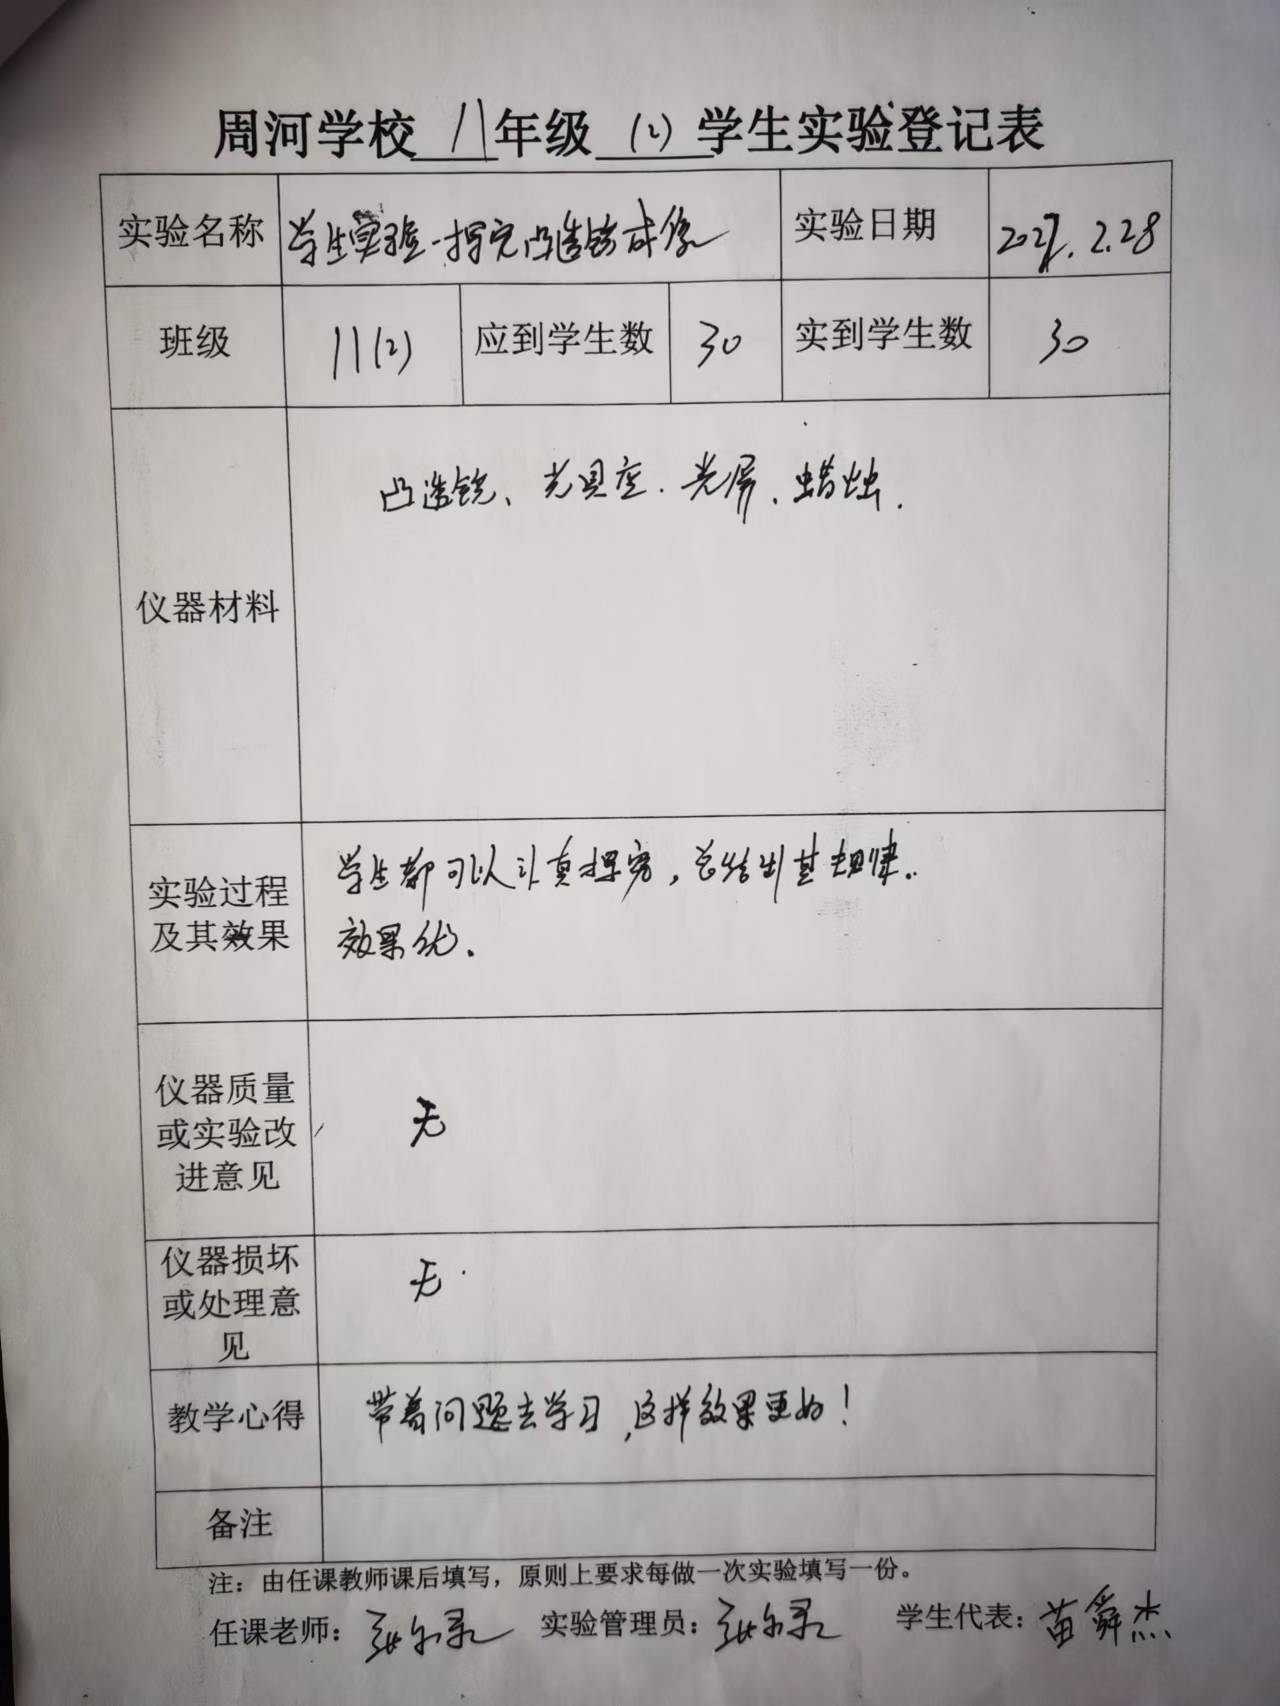 周河学校 八年级 (2) 学生实验登记表
实验名称 学生实验-探究凸透镜成像 实验日期 2.28
班级 八(2) 应到学生数 30 实到学生数 30
仪器材料 凸透镜、光具座.光屏、蜡烛.
实验过程
及其效果
学生都可以认真探究,总结出其规律.
效果优.
仪器质量
或实验改
进意见
无
仪器损坏
或处理意
见
无.
教学心得 带着问题去学习,这样效果更好!
备注
注:由任课教师课后填写,原则上要求每做一次实验填写一份。
任课老师: 实验管理员: 学生代表:苗舜杰